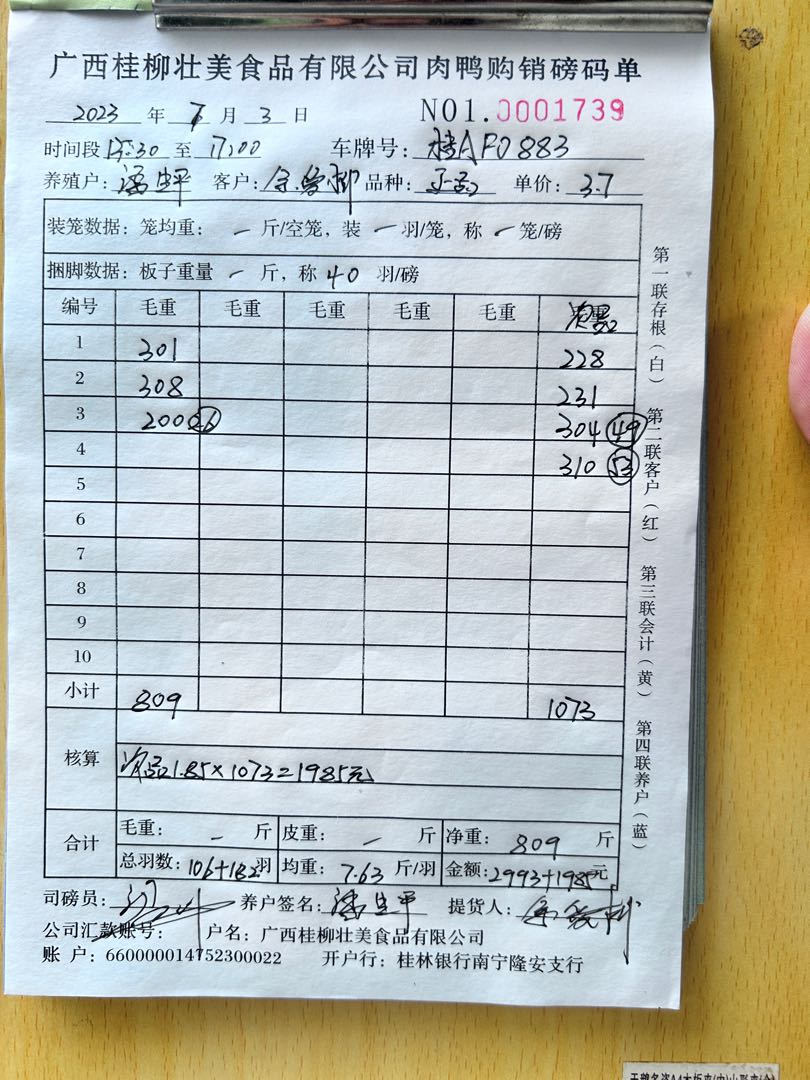 广西桂柳壮美食品有限公司肉鸭购销磅码单
2023 年 7 月 3 日 NO1.0001739
时间段 15:30 至 17:00 车牌号: 桂AF0883
养殖户: 潘生坪 客户: 品种: 单价: 3.7
装笼数据: 笼均重: 一 斤/空笼, 装 一 羽/笼, 称 一 笼/磅
捆脚数据: 板子重量 一 斤, 称 40 羽/磅
编号 毛重 毛重 毛重 毛重 毛重 次品
1 301 228
2 308 231
3 200 26 304 49
4 310 53
5
6
7
8
9
10
小计 809 1073
核算 次品1.85×1073=1985元
合计 毛重: 一 斤 皮重: 一 斤 净重: 809 斤
总羽数: 106+182羽 均重: 7.63 斤/羽 金额: 2993+1985元
司磅员: 养户签名: 潘生坪 提货人:
公司汇款账号: 户名: 广西桂柳壮美食品有限公司
账 户: 660000014752300022 开户行: 桂林银行南宁隆安支行
第一联存根(白) 第二联客户(红) 第三联会计(黄) 第四联养户(蓝)